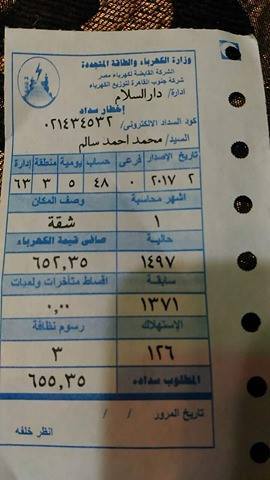 وزارة الكهرباء والطاقة المتجددة
الشركة القابضة لكهرباء مصر
شركة جنوب القاهرة لتوزيع الكهرباء
إدارة/ دارالسلام
إخطار سداد
كود السداد الالكترونى/ ٠٢١٤٣٤٥٣٢
السيد/ محمد احمد سالم
تاريخ الإصدار فرعى حساب يومية منطقة إدارة
٢ ٢٠١٧ ٠ ٤٨ ٥ ٣ ٦٣
اشهر محاسبة وصف المكان
١ شقة
حالية صافى قيمة الكهرباء
١٤٩٧ ٦٥٢,٣٥
سابقة اقساط متأخرات ولمبات
١٣٧١ ٠,٠٠
الإستهلاك رسوم نظافة
١٢٦ ٣
المطلوب سداده ٦٥٥,٣٥
تاريخ المرور / /
انظر خلفه